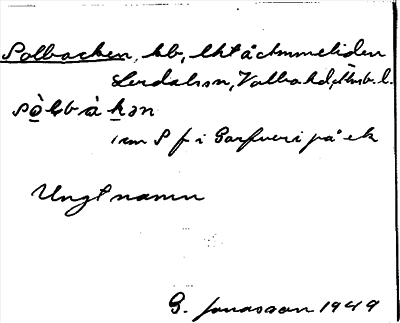 Solbacken, hb, lht å Ammeliden
Lerdalssn, Valbohd, Älvsb. l.
sòḷbàkən
1 cm S f i Garfveri på ek
Ungt namn
G. Jonasson 1949